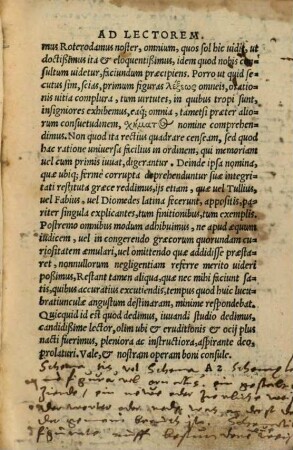 AD LECTOREM.
mus Roterodamus noster, omnium, quos sol hic uidit, ut
doctißimus ita & eloquentißimus, idem quod nobis con
sultum uidetur, faciundum præcipiens. Porro ut quid se
cutus sim, scias, primum figuras λέξεως omneis, oratio-
nis uitia complura, tum uirtutes, in quibus tropi sunt,
insigniores exhibemus, eaq́; omnia, tametsi præter alio-
rum consuetudinem, nomine comprehendi-
dimus. Non quod ita rectius quadrare censeam, sed quod
hac ratione uniuersa facilius in ordinem, qui memoriam
uel cum primis iuuat, digerantur. Deinde ipsa nomina,
quæ ubiq; ferme corrupta deprehenduntur suæ integri-
tati restituta græce reddimus, ijs etiam, quæ uel Tullius,
uel Fabius, uel Diomedes latina fecerunt, appositis, pa-
riter singula explicantes, tum finitionibus, tum exemplis.
Postremo omnibus modum adhibuimus, ne apud æquum
iudicem, uel in congerendo græcorum quorundam cu-
riositatem æmulari, uel omittendo quæ addidisse præsta-
ret, nonnullorum negligentiam referre merito uideri
poßimus, Restant tamen aliqua, quæ nec mihi faciunt sa-
tis, quibus accuratius excutiendis, tempus quod huic lucu-
bratiunculæ angustum destinaram, minime respondebat.
Quicquid id est quod dedimus, iuuandi studio dedimus,
candidißime lector, olim ubi & eruditionis & ocij plus
nacti fuerimus, pleniora ac instructiora, aspirante deo
prolaturi. Vale, & nostram operam boni consule.